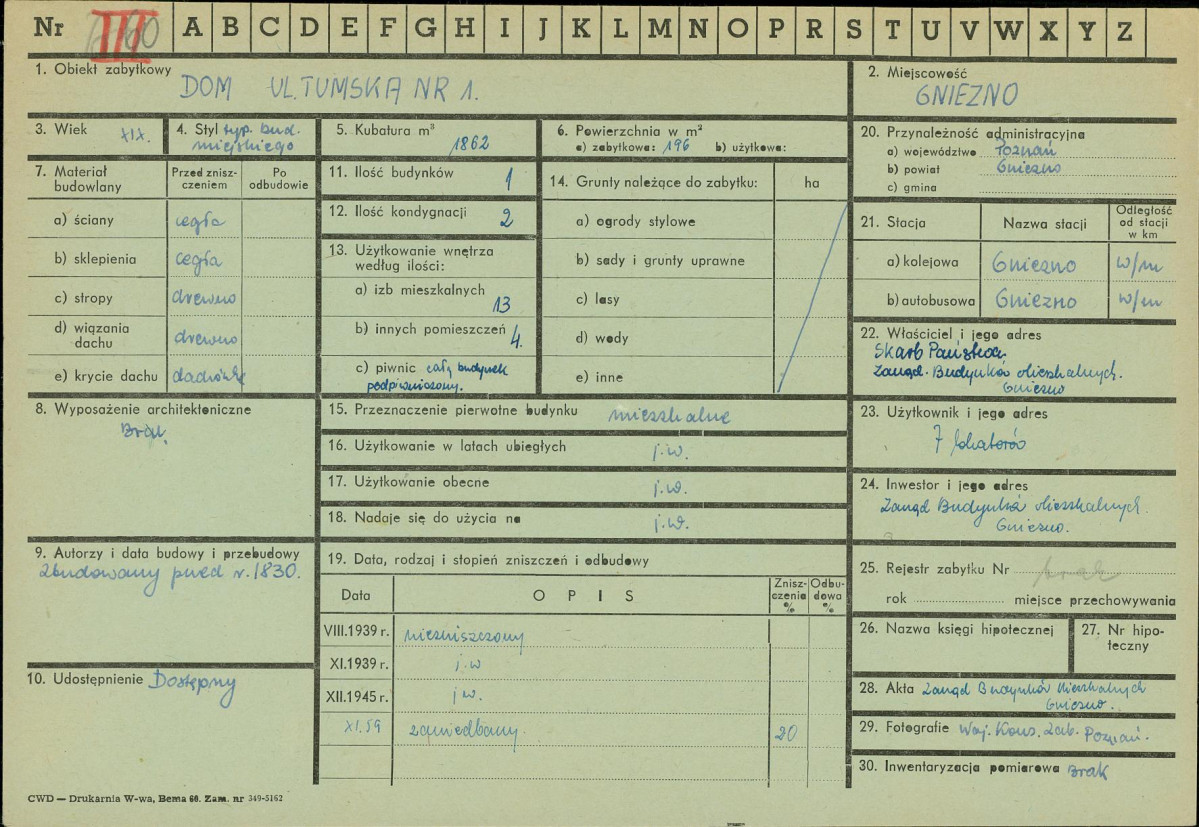 Nr III A B C D E F G H I J K L M N O P R S T U V W X Y Z
1. Obiekt zabytkowy DOM UL. TUMSKA NR 1.
2. Miejscowość GNIEZNO
3. Wiek XIX.
4. Styl typ. bud. miejskiego
5. Kubatura m³ 1862
6. Powierzchnia w m²
a) zabytkowa: 196 b) użytkowa:
7. Materiał budowlany
Przed zniszczeniem
Po odbudowie
a) ściany cegła
b) sklepienia cegła
c) stropy drewno
d) wiązania dachu drewno
e) krycie dachu dachówka
8. Wyposażenie architektoniczne
Brak
9. Autorzy i data budowy i przebudowy
zbudowany przed r. 1830.
10. Udostępnienie Dostępny
11. Ilość budynków 1
12. Ilość kondygnacji 2
13. Użytkowanie wnętrza według ilości:
a) izb mieszkalnych 13
b) innych pomieszczeń 4.
c) piwnic cały budynek podpiwniczony.
14. Grunty należące do zabytku: ha
a) ogrody stylowe
b) sady i grunty uprawne
c) lasy
d) wody
e) inne
15. Przeznaczenie pierwotne budynku mieszkalne
16. Użytkowanie w latach ubiegłych j.w.
17. Użytkowanie obecne j.w.
18. Nadaje się do użycia na j.w.
19. Data, rodzaj i stopień zniszczeń i odbudowy
Data OPIS Zniszczenia % Odbudowa %
VIII.1939 r. niezniszczony
XI.1939 r. j.w
XII.1945 r. j.w.
XI.59 zaniedbany 20
20. Przynależność administracyjna
a) województwo Poznań
b) powiat Gniezno
c) gmina
21. Stacja Nazwa stacji Odległość od stacji w km
a) kolejowa Gniezno w/m
b) autobusowa Gniezno w/m
22. Właściciel i jego adres
Skarb Państwa.
Zarząd. Budynków Mieszkalnych.
Gniezno
23. Użytkownik i jego adres
7 lokatorów
24. Inwestor i jego adres
Zarząd Budynków Mieszkalnych.
Gniezno.
25. Rejestr zabytku Nr brak
rok miejsce przechowywania
26. Nazwa księgi hipotecznej
27. Nr hipoteczny
28. Akta Zarząd Budynków Mieszkalnych
Gniezno.
29. Fotografie Woj. Kons. Zab. Poznań.
30. Inwentaryzacja pomiarowa Brak
CWD — Drukarnia W-wa, Bema 60. Zam. nr 349-5162